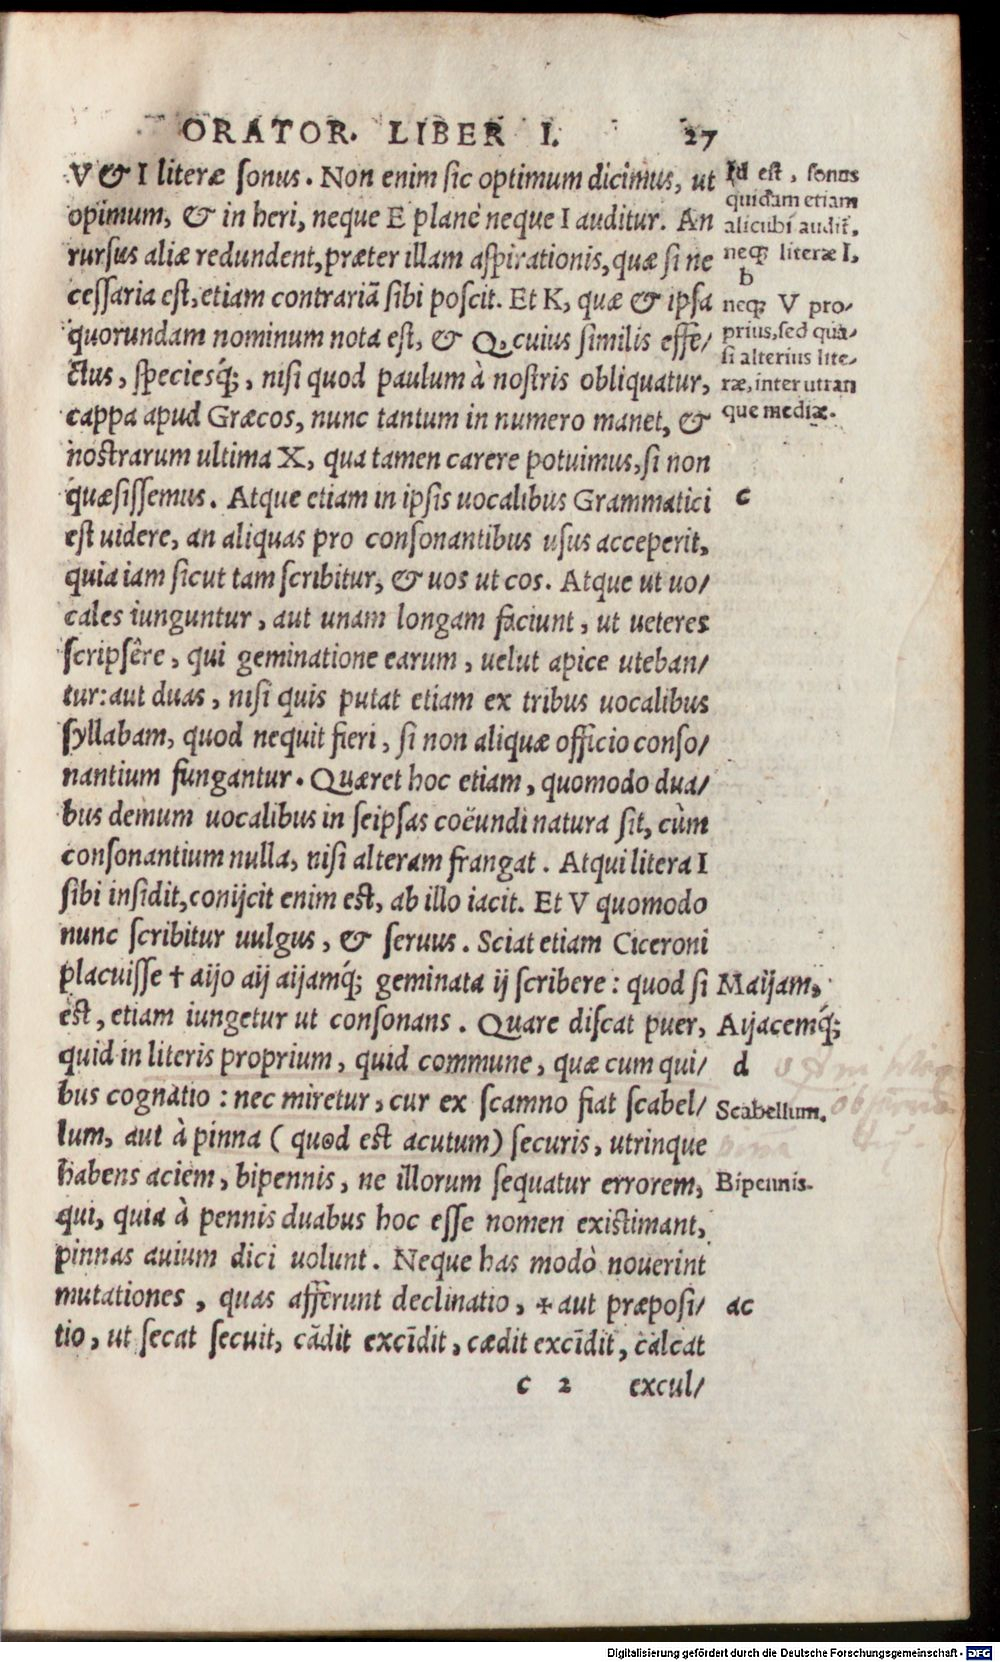 ORATOR. LIBER I. 27
V & I literæ ſonus. Non enim ſic optimum dicimus, ut
opimum, & in heri, neque E planè neque I auditur. An
rurſus aliæ redundent, præter illam aſpirationis, quæ ſi ne
ceſſaria eſt, etiam contrariā ſibi poſcit. Et K, quæ & ipſa
quorundam nominum nota eſt, & Q, cuius ſimilis effe/
ctus, ſpeciesq́;, niſi quod paulum à noſtris obliquatur,
cappa apud Græcos, nunc tantum in numero manet, &
noſtrarum ultima X, qua tamen carere potuimus, ſi non
quæſiſſemus. Atque etiam in ipſis uocalibus Grammatici
eſt uidere, an aliquas pro conſonantibus uſus acceperit,
quia iam ſicut tam ſcribitur, & uos ut cos. Atque ut uo/
cales iunguntur, aut unam longam faciunt, ut ueteres
ſcripſêre, qui geminatione earum, uelut apice uteban/
tur: aut duas, niſi quis putat etiam ex tribus uocalibus
ſyllabam, quod nequit fieri, ſi non aliquæ officio conſo/
nantium fungantur. Quæret hoc etiam, quomodo dua/
bus demum uocalibus in ſeipſas coëundi natura ſit, cùm
conſonantium nulla, niſi alteram frangat. Atqui litera I
ſibi inſidit, conijcit enim eſt, ab illo iacit. Et V quomodo
nunc ſcribitur uulgus, & ſeruus. Sciat etiam Ciceroni
placuiſſe † aijo aij aijamq́; geminata ij ſcribere: quod ſi
eſt, etiam iungetur ut conſonans. Quare diſcat puer,
quid in literis proprium, quid commune, quæ cum qui/
bus cognatio: nec miretur, cur ex ſcamno fiat ſcabel/
lum, aut à pinna (quod eſt acutum) ſecuris, utrinque
habens aciem, bipennis, ne illorum ſequatur errorem,
qui, quia à pennis duabus hoc eſſe nomen exiſtimant,
pinnas auium dici uolunt. Neque has modò nouerint
mutationes, quas afferunt declinatio, + aut præpoſi/
tio, ut ſecat ſecuit, cādit excīdit, cædit excīdit, calcat
c 2 excul/
Id eſt, ſonus
quidam etiam
alicubi audit̃,
neq; literæ I,
b
neq; V pro/
prius, ſed qua/
ſi alterius lite/
ræ, inter utran
que mediæ.
c
Maijam,
Aijacemq́;
d
Scabellum.
Bipennis.
ac
Digitalisierung gefördert durch die Deutsche Forschungsgemeinschaft - DFG